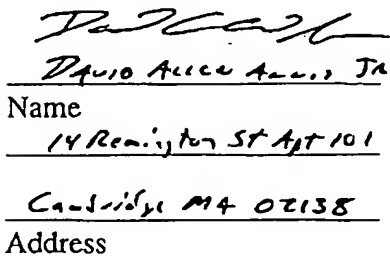 David Allen Annis Jr
Name
14 Remington St Apt 101
Cambridge MA 02138
Address